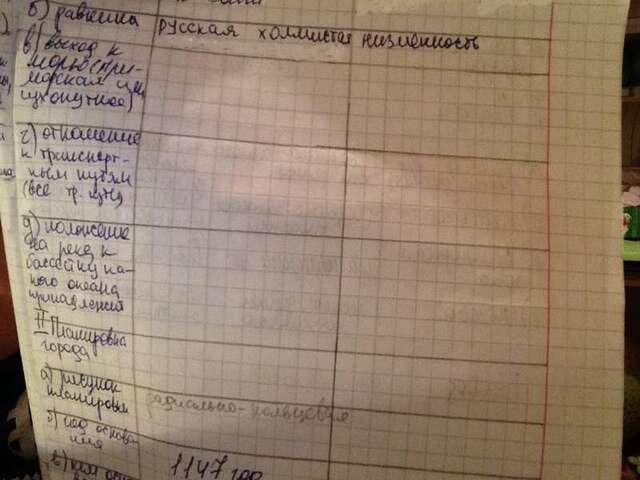 б) равнина
русская холмистая низменность
в) выход к
морю (при-
морская или
сухопутное)
г) отношение
к транспорт-
ным путям
(все тр. пути)
д) положение
на реке к
бассейну ка-
кого океана
принадлежит
II Планировка
города
а) рисунок
планировки
радиально-кольцевая
б) год основа-
ния
1147 год
в) кем осно